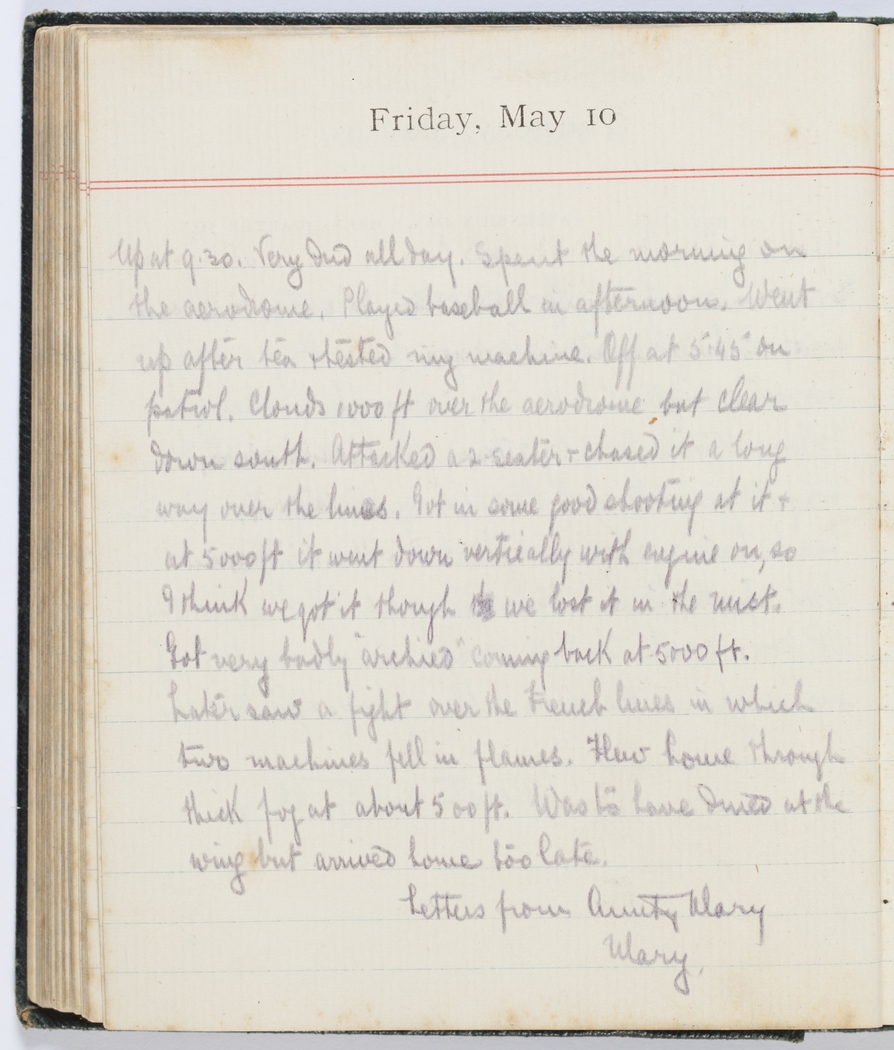 Friday, May 10
Up at 9.30. Very dud all day. Spent the morning on
the aerodrome. Played baseball in afternoon. Went
up after tea & tested my machine. Off at 5.45 on
patrol. Clouds 1000 ft over the aerodrome but clear
down south. Attacked a 2-seater & chased it a long
way over the lines. Got in some good shooting at it &
at 5000 ft it went down vertically with engine on, so
I think we got it though we lost it in the mist.
Got very badly "archied" coming back at 5000 ft.
Later saw a fight over the French lines in which
two machines fell in flames. Flew home through
thick fog at about 500 ft. Was to have dined at the
wing but arrived home too late.
Letters from Aunty Mary
Mary.